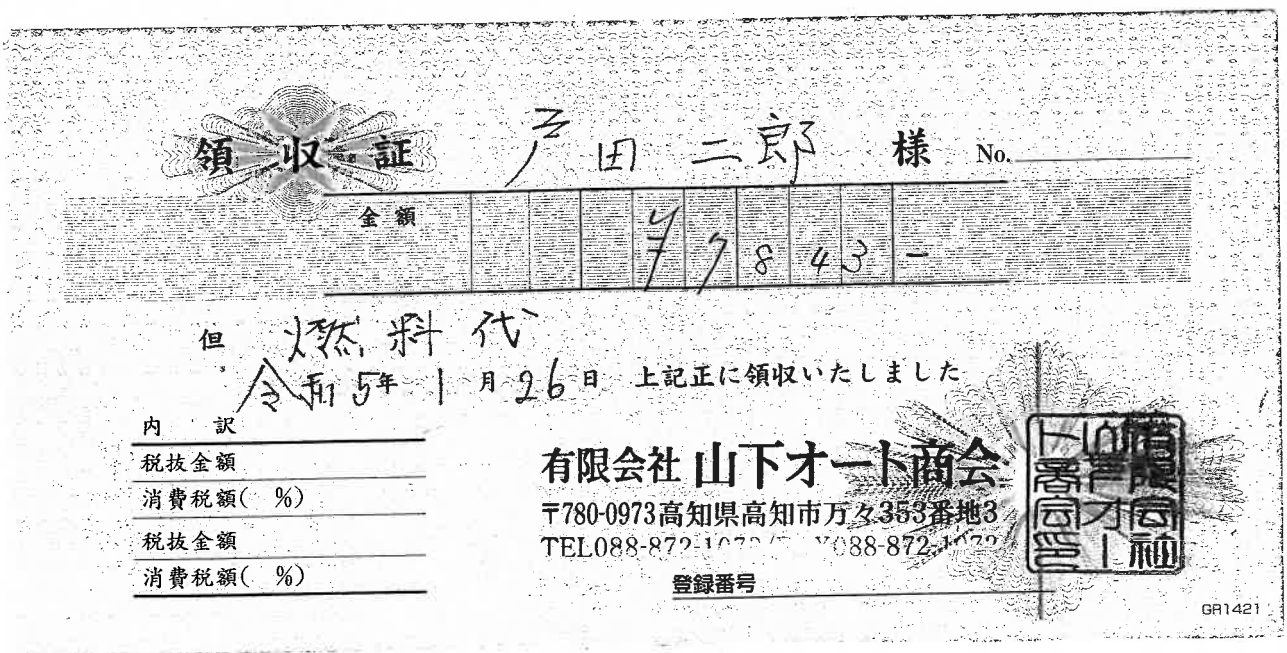 領収証
戸田二郎 様 No.
金額 ¥7843-
但 燃料代
令和5年1月26日 上記正に領収いたしました
内 訳
税抜金額
消費税額( %)
税抜金額
消費税額( %)
有限会社 山下オート商会
〒780-0973高知県高知市万々353番地3
TEL088-872- 088-872-
登録番号
有限会社
山下オー
ト商会印
GR1421